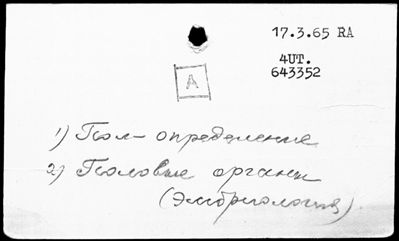 17.3.65 RA
4UT.
643352
A
1) Пол - определение
2) Половые органы
(Эмбриология).